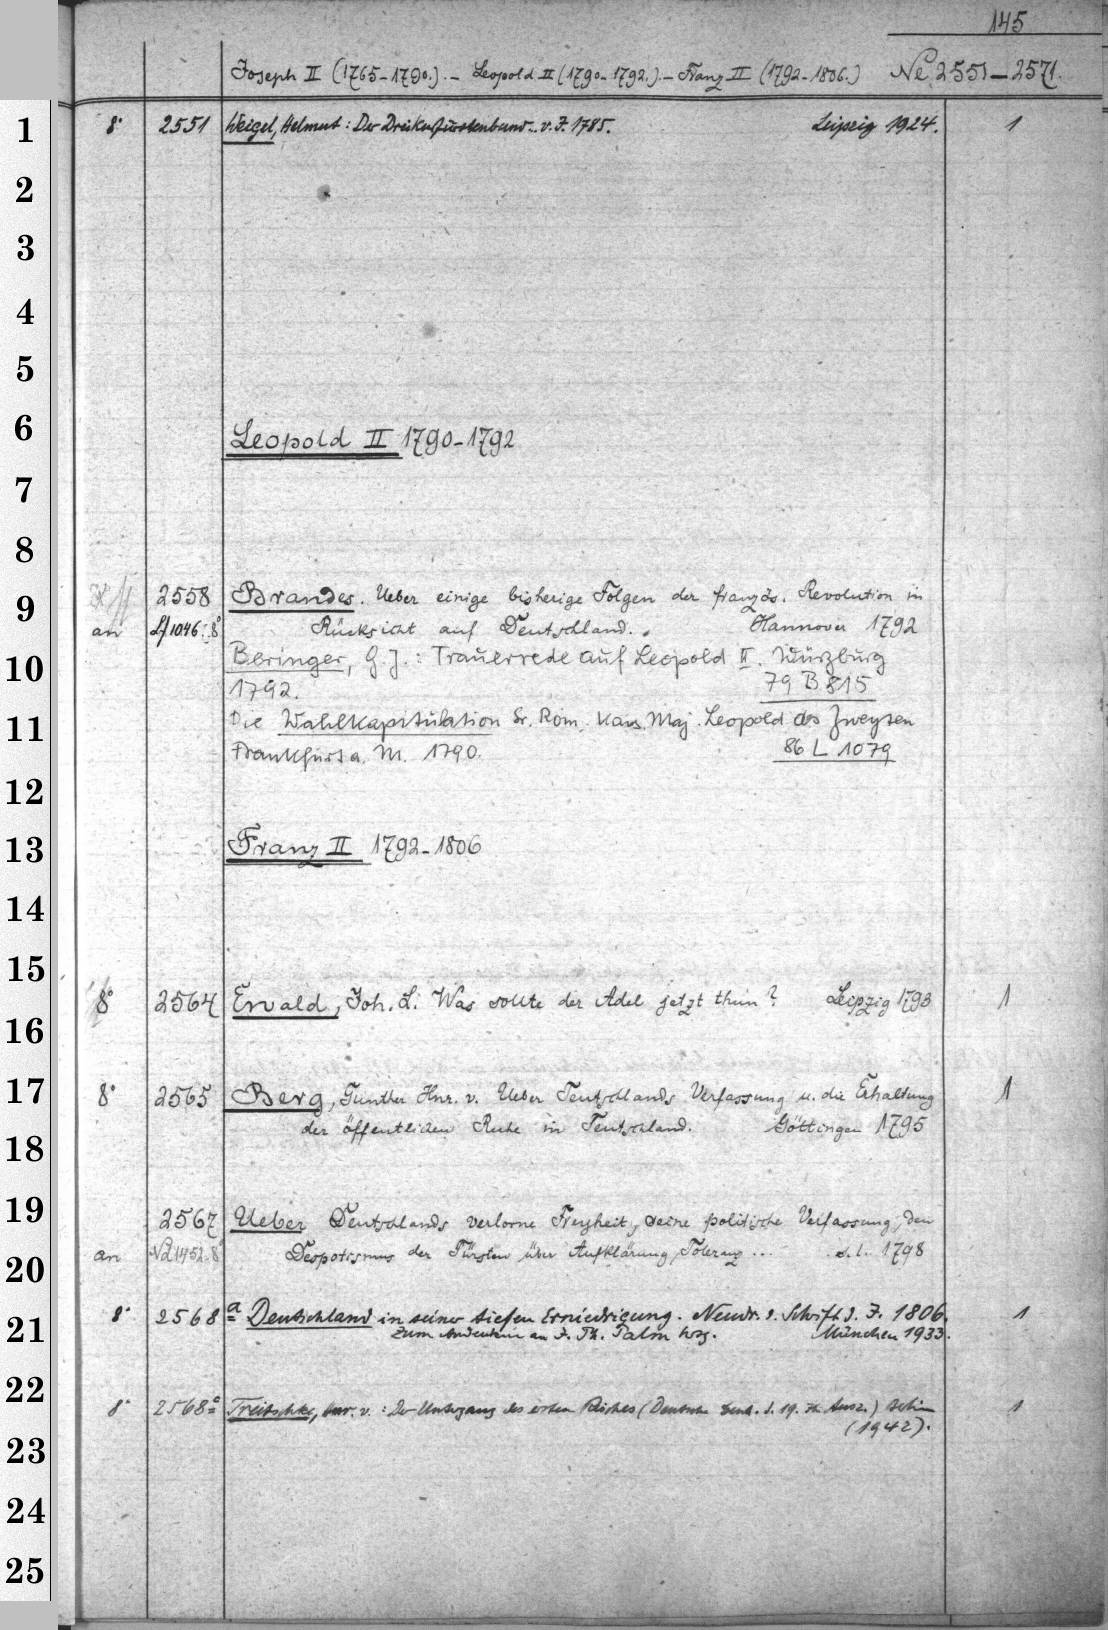 145
Joseph II (1765-1790.). - Leopold II (1790-1792.). - Franz II (1792-1806.) Ne. 2551-2571.
8° 2551 Weigel, Helmut: Der Dreikurfürstenbund.. v. J. 1785. Leipzig 1924. 1
Leopold II 1790-1792
2558 Brandes. Ueber einige bisherige Folgen der französ. Revolution in
an 1046: 8° Rücksicht auf Deutschland. Hannover 1792
Beringer, G. J.: Trauerrede auf Leopold II. Würzburg
1792. 79 B 815
Die Wahlkapitulation Sr. Röm. Kais. Maj. Leopold des Zweyten
Frankfurt a. M. 1790. 86 L 1079
Franz II 1792-1806
8° 2564 Ewald, Joh. L. Was sollte der Adel jetzt thun? Leipzig 1793 1
8° 2565 Berg, Günther Hnr. v. Ueber Teutschlands Verfassung u. die Erhaltung 1
der öffentlichen Ruhe in Teutschland. Göttingen 1795
2567 Ueber Deutschlands verlorne Freyheit, seine politische Verfassung, den
an 1452: 8° Despotismus der Fürsten über Aufklärung, Toleranz ... s. l. 1798
8° 2568 a Deutschland in seiner tiefen Erniedrigung. Neudr. d. Schrift d. J. 1806. 1
Zum Andenken an J. Ph. Palm hrsg. München 1933.
8° 2568 c Treitschke, Hnr. v.: Der Untergang des ersten Reiches (Deutsche Gesch. d. 19. Jh. Ausz.) Berlin 1
(1942).
1
2
3
4
5
6
7
8
9
10
11
12
13
14
15
16
17
18
19
20
21
22
23
24
25